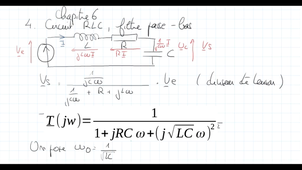 Chapitre 6
4. Circuit RLC, filtre passe-bas
I L R
Ve jLω C Uc Vs
Vs = 1/jCω / (1/jCω + R + jLω) . Ve (diviseur de tension)
T(jw) = 1 / (1 + jRC ω + (j√LC ω)²)
On pose ω₀ = 1/√LC